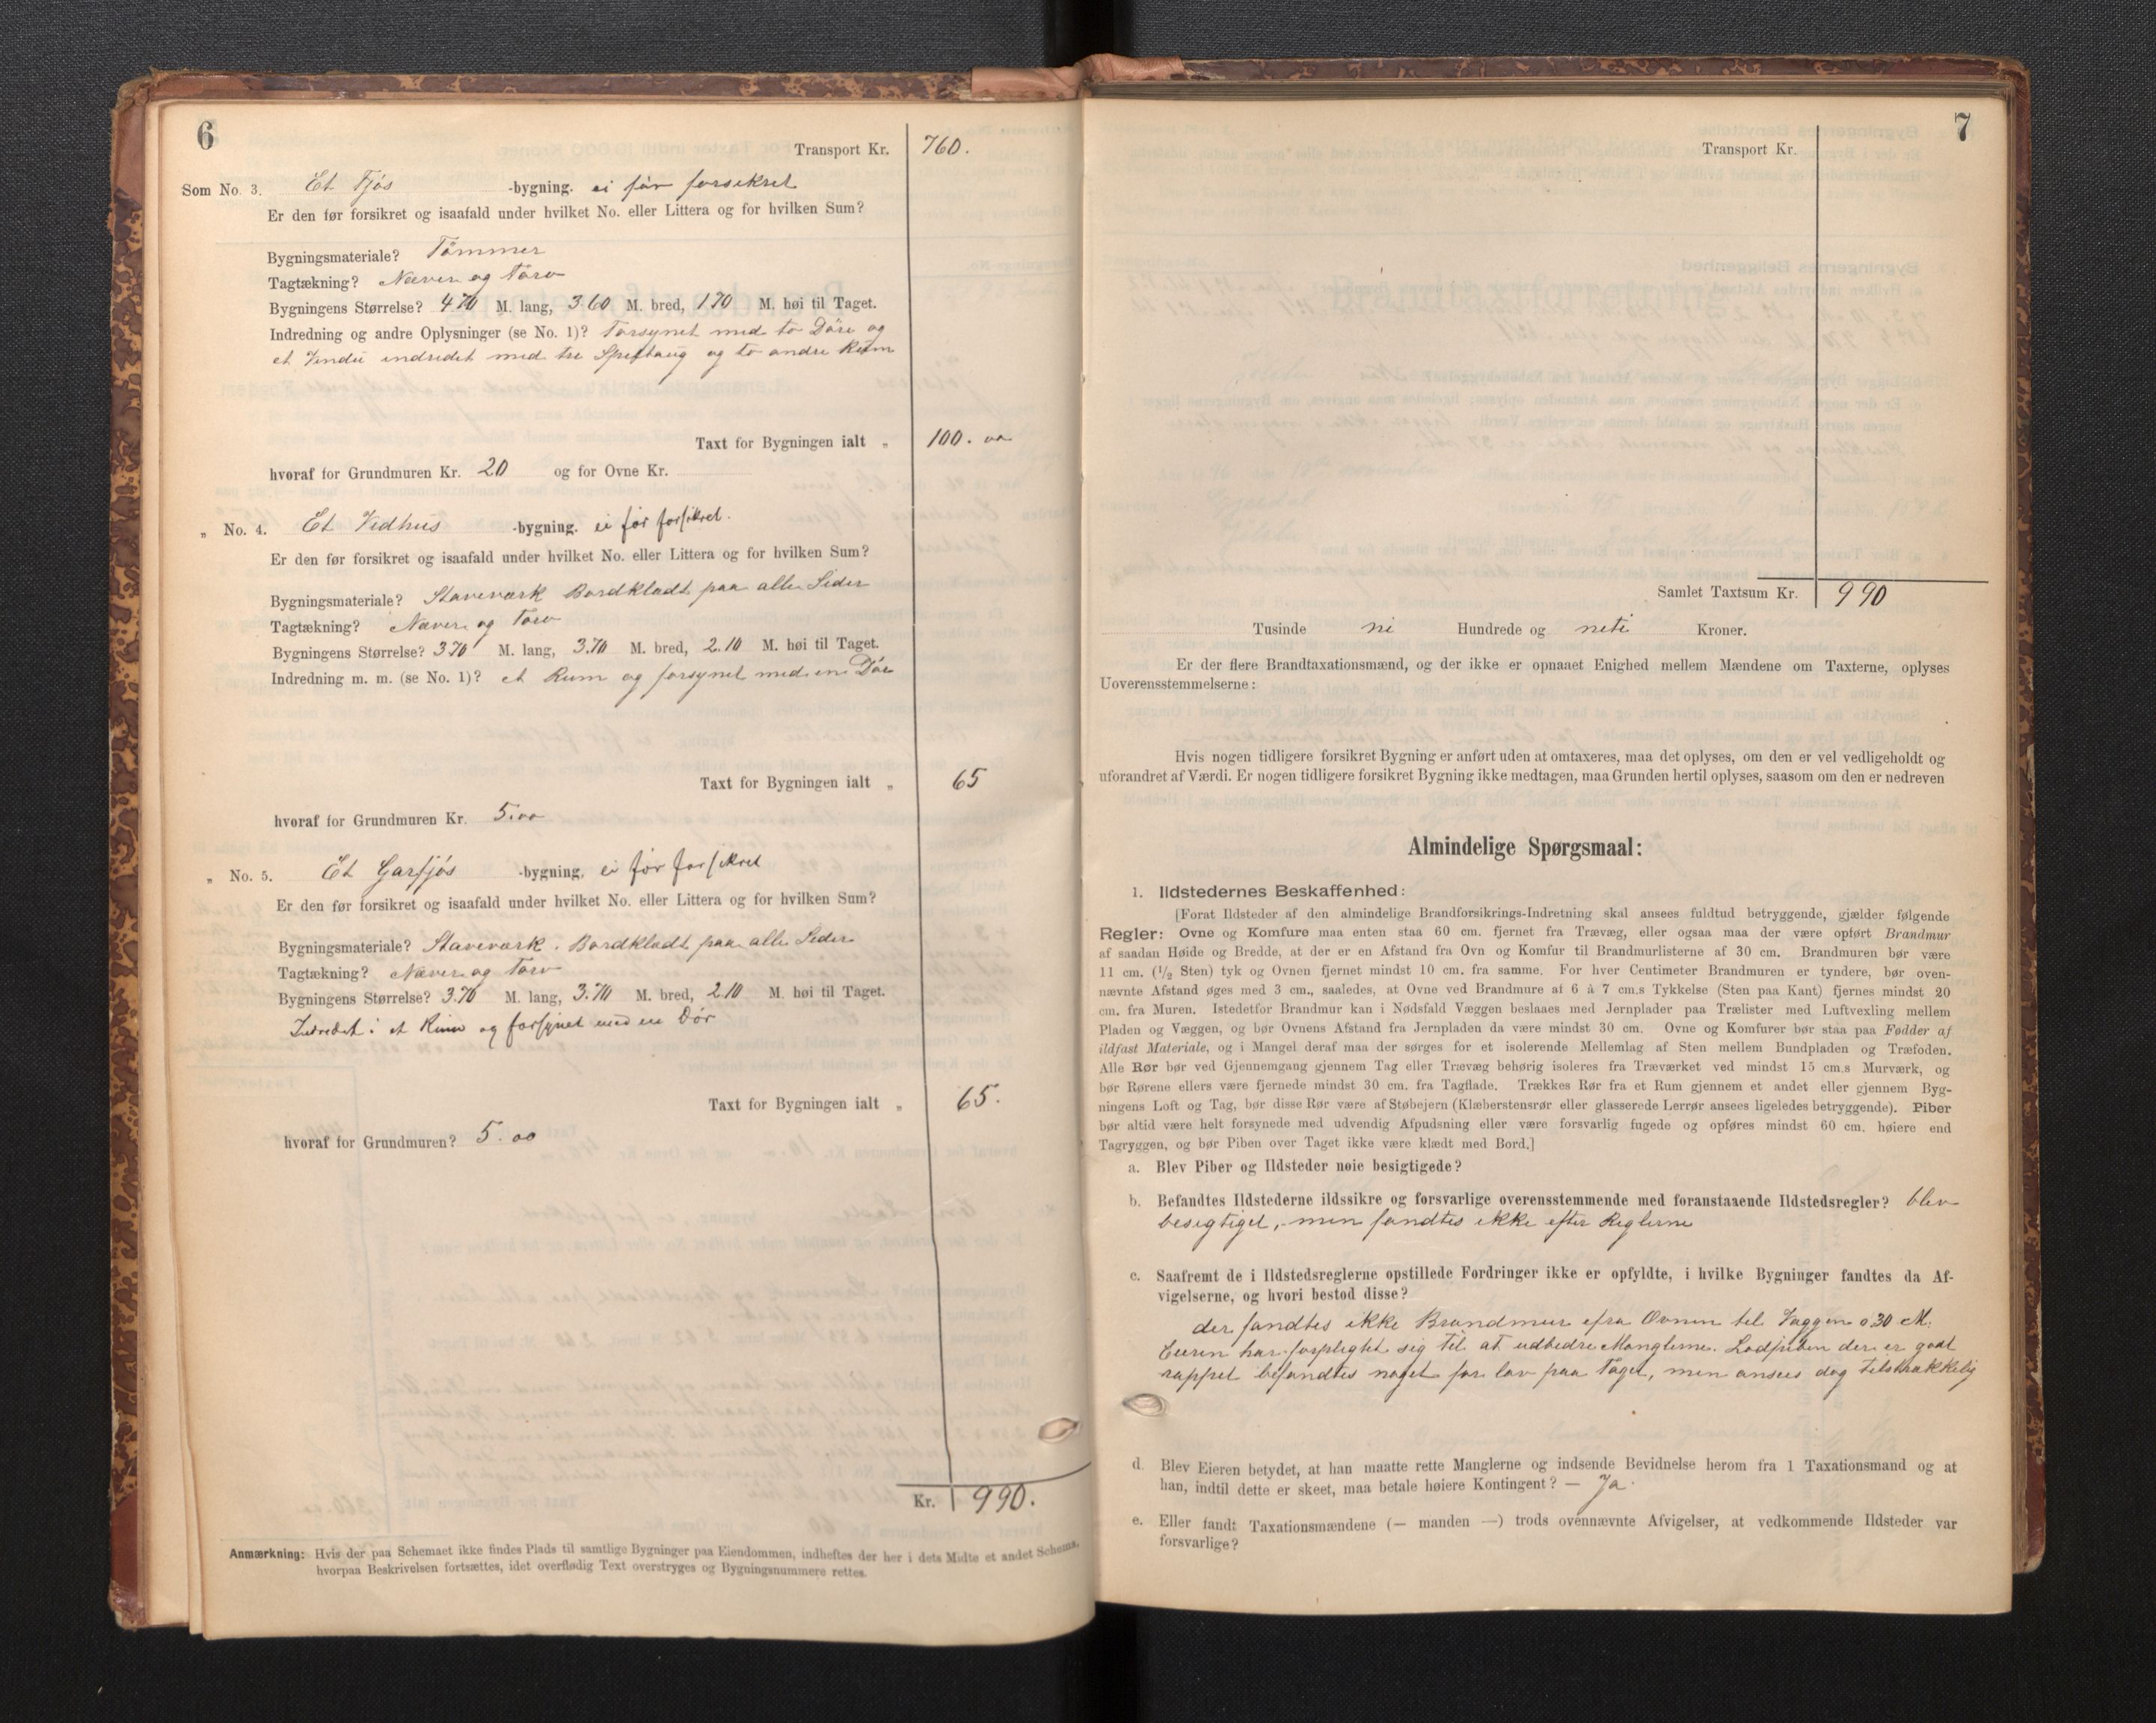 6
Transport Kr. 760.
Som No. 3. Et Fjøs -bygning. ei før forsikret
Er den før forsikret og isaafald under hvilket No. eller Littera og for hvilken Sum?
Bygningsmateriale? Tømmer
Tagtækning? Næver og Torv
Bygningens Størrelse? 4.70 M. lang, 3.60 M. bred, 1.70 M. høi til Taget.
Indredning og andre Oplysninger (se No. 1)? Forsynet med to Døre og
et Vindu indredet med tre og to andre Rum
Taxt for Bygningen ialt „ 100. oo
hvoraf for Grundmuren Kr. 20 og for Ovne Kr.
„ No. 4. Et Vedhus -bygning. ei før forsikret.
Er den før forsikret og isaafald under hvilket No. eller Littera og for hvilken Sum?
Bygningsmateriale? Staveværk Bordklædt paa alle Sider
Tagtækning? Næver og Torv
Bygningens Størrelse? 3.70 M. lang, 3.70 M. bred, 2.10 M. høi til Taget.
Indredning m. m. (se No. 1)? et Rum og forsynet med en Dør
Taxt for Bygningen ialt „ 65
hvoraf for Grundmuren Kr. 5.oo
„ No. 5. Et Garfjøs -bygning, ei før forsikret
Er den før forsikret og isaafald under hvilket No. eller Littera og for hvilken Sum?
Bygningsmateriale? Staveværk. Bordklædt paa alle Sider
Tagtækning? Næver og Torv
Bygningens Størrelse? 3.70 M. lang, 3.70 M. bred, 2.10 M. høi til Taget.
Indredet i et Rum og forsynet med en Dør
Taxt for Bygningen ialt „ 65.
hvoraf for Grundmuren? 5.oo
Kr. 990.
Anmærkning: Hvis der paa Schemaet ikke findes Plads til samtlige Bygninger paa Eiendommen, indheftes der her i dets Midte et andet Schema,
hvorpaa Beskrivelsen fortsættes, idet overflødig Text overstryges og Bygningsnummere rettes.
7
Transport Kr.
Samlet Taxtsum Kr. 990
Tusinde ni Hundrede og neti Kroner.
Er der flere Brandtaxationsmænd, og der ikke er opnaaet Enighed mellem Mændene om Taxterne, oplyses
Uoverensstemmelserne:
Hvis nogen tidligere forsikret Bygning er anført uden at omtaxeres, maa det oplyses, om den er vel vedligeholdt og
uforandret af Værdi. Er nogen tidligere forsikret Bygning ikke medtagen, maa Grunden hertil oplyses, saasom om den er nedreven
Almindelige Spørgsmaal:
1. Ildstedernes Beskaffenhed:
[Forat Ildsteder af den almindelige Brandforsikrings-Indretning skal ansees fuldtud betryggende, gjælder følgende
Regler: Ovne og Komfure maa enten staa 60 cm. fjernet fra Trævæg, eller ogsaa maa der være opført Brandmur
af saadan Høide og Bredde, at der er en Afstand fra Ovn og Komfur til Brandmurlisterne af 30 cm. Brandmuren bør være
11 cm. (1/2 Sten) tyk og Ovnen fjernet mindst 10 cm. fra samme. For hver Centimeter Brandmuren er tyndere, bør oven-
nævnte Afstand øges med 3 cm., saaledes, at Ovne ved Brandmure af 6 à 7 cm.s Tykkelse (Sten paa Kant) fjernes mindst 20
cm. fra Muren. Istedetfor Brandmur kan i Nødsfald Væggen beslaaes med Jernplader paa Trælister med Luftvexling mellem
Pladen og Væggen, og bør Ovnens Afstand fra Jernpladen da være mindst 30 cm. Ovne og Komfurer bør staa paa Fødder af
ildfast Materiale, og i Mangel deraf maa der sørges for et isolerende Mellemlag af Sten mellem Bundpladen og Træfoden.
Alle Rør bør ved Gjennemgang gjennem Tag eller Trævæg behørig isoleres fra Træværket ved mindst 15 cm.s Murværk, og
bør Rørene ellers være fjernede mindst 30 cm. fra Tagflade. Trækkes Rør fra et Rum gjennem et andet eller gjennem Byg-
ningens Loft og Tag, bør disse Rør være af Støbejern (Klæberstensrør eller glasserede Lerrør ansees ligeledes betryggende). Piber
bør altid være helt forsynede med udvendig Afpudsning eller være forsvarlig fugede og opføres mindst 60 cm. høiere end
Tagryggen, og bør Piben over Taget ikke være klædt med Bord.]
a. Blev Piber og Ildsteder nøie besigtigede?
b. Befandtes Ildstederne ildssikre og forsvarlige overensstemmende med foranstaaende Ildstedsregler? blev
besigtiget, men fandtes ikke efter Reglerne
c. Saafremt de i Ildstedsreglerne opstillede Fordringer ikke er opfyldte, i hvilke Bygninger fandtes da Af-
vigelserne, og hvori bestod disse?
der fandtes ikke Brandmur efra Ovnen til Væggen 0.30 M.
Eieren har forpligtet sig til at udbedre Manglerne. Lodpiben der er godt
rappet befandtes noget for lav paa Taget, men ansees dog tilstrækkelig
d. Blev Eieren betydet, at han maatte rette Manglerne og indsende Bevidnelse herom fra 1 Taxationsmand og at
han, indtil dette er skeet, maa betale høiere Kontingent? — Ja.
e. Eller fandt Taxationsmændene (— manden —) trods ovennævnte Afvigelser, at vedkommende Ildsteder var
forsvarlige?